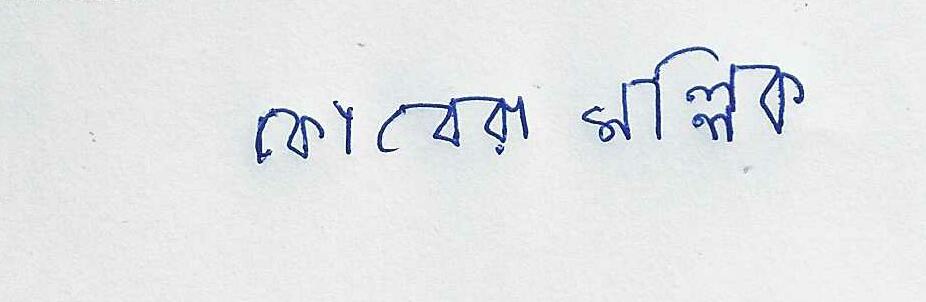 কোবেরা মল্লিক